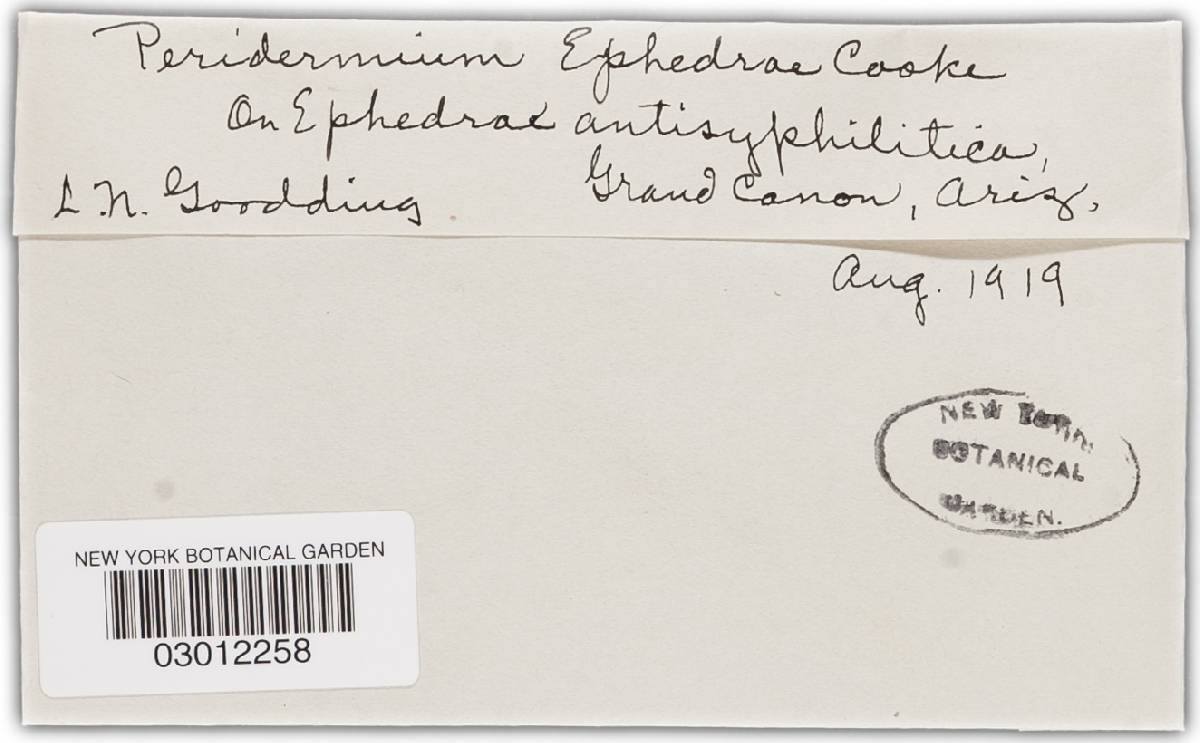 Peridermium Ephedrae Cooke
On Ephedrae antisyphilitica,
L.N. Goodding Grand Canon, Ariz,
Aug. 1919
NEW YORK
BOTANICAL
GARDEN.
NEW YORK BOTANICAL GARDEN
03012258